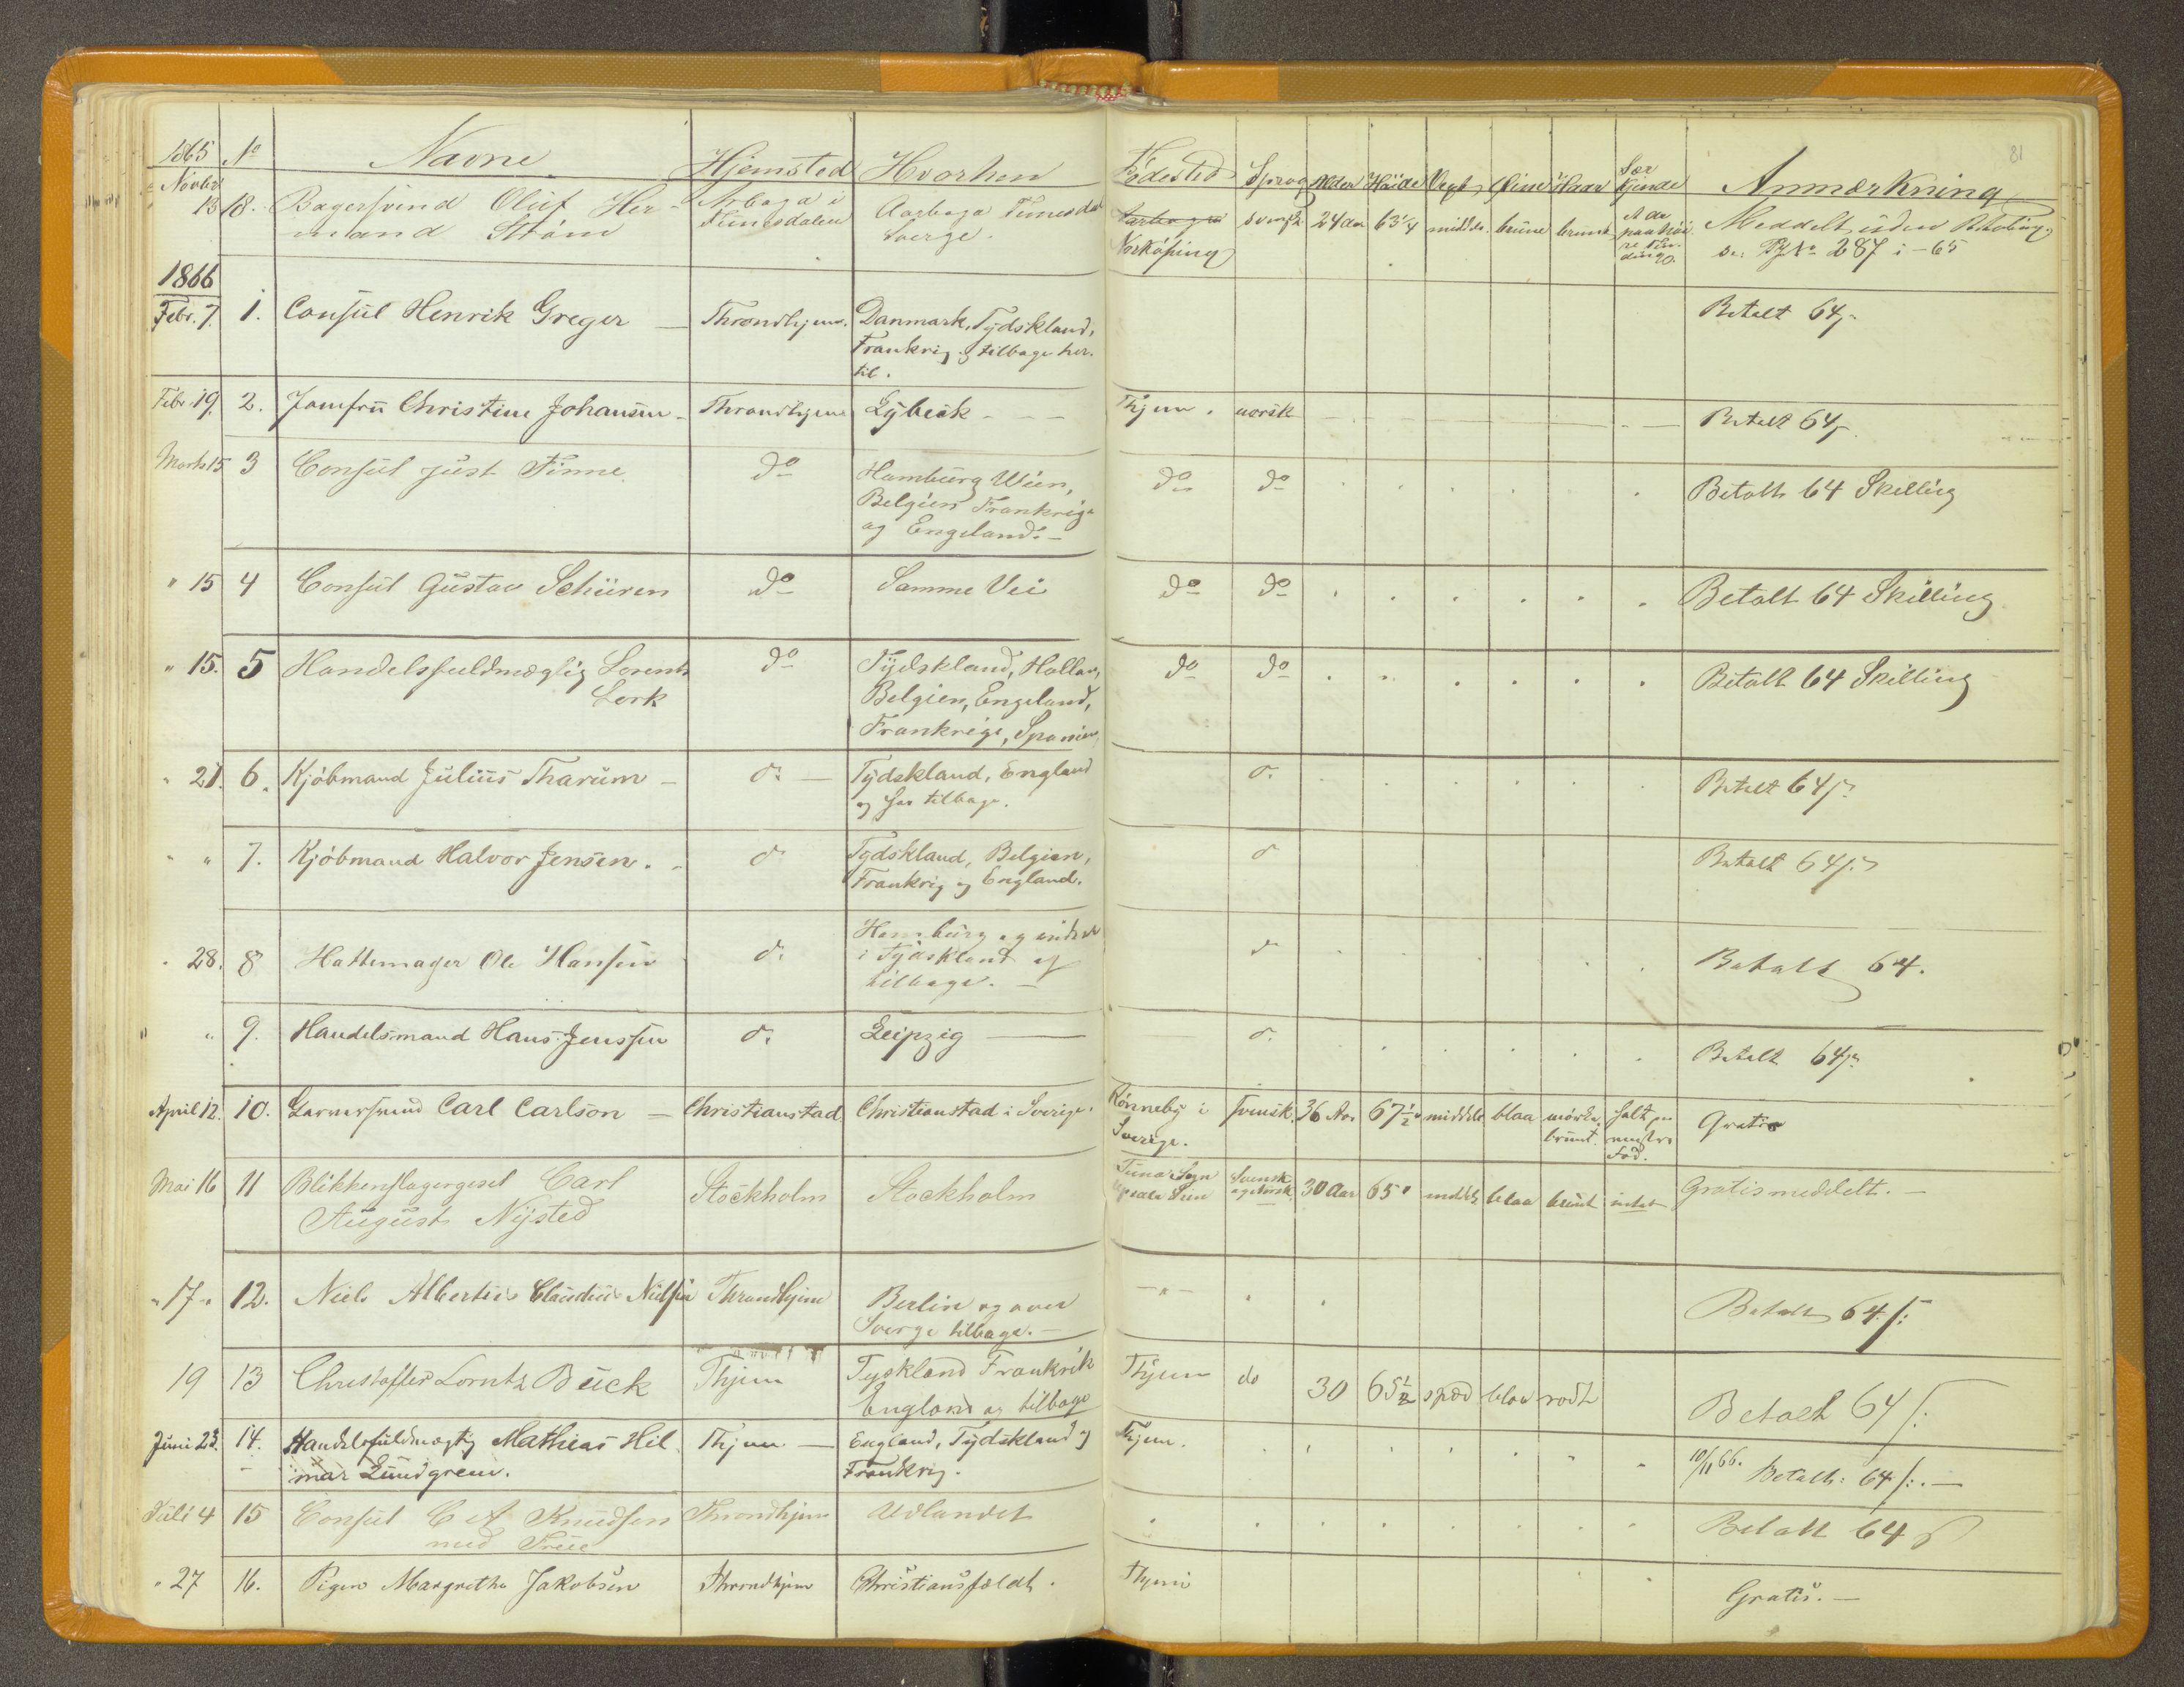 81
1865 No Navne Hjemsted Hvorhen Födested Sprog Alder Höide Vext Öine Haar Særkjende Anmærkning
Novbr
13 18. Bagersvend Oluf Her- Arboga i Aarboga Tunesdal Svensk 24 Aar 63 1/4 middels brune brunt Meddelt uden Betaling
mand Ström Tunesdalen Sverge. Norköping se: No 287 i -65
1866
Febr. 7. 1. Consul Henrik Greger Throndhjem. Danmark, Tydskland, Betalt 64
Frankrig og tilbage her-
til.
Febr. 19. 2. Jomfru Christine Johansen Throndhjem Lybeck Thjem. norsk Betalt 64
Marts 15 3 Consul Just Finne do Hamburg Wien, do do Betalt 64 Skilling
Belgien Frankrige
og Engeland.
" 15 4 Consul Gustav Schüren do Samme Vei do do Betalt 64 Skilling
" 15. 5 Handelsfuldmægtig Lorents do Tydskland, Hollan, do do Betalt 64 Skilling
Lork Belgien, Engeland,
Frankrige, Spanien,
" 21. 6. Kjöbmand Julius Tharum do Tydskland, England do Betalt 64
og tilbage.
" " 7. Kjöbmand Halvor Jensen. do Tydskland, Belgien, do Betalt 64
Frankrig og England.
" 28. 8 Hattemager Ole Hansen do Hamburg og do Betalt 64.
i Tydskland og
tilbage.
" 9. Handelsmand Hans Jenssen do Leipzig do Betalt 64
April 12. 10. Garversvend Carl Carlson Christianstad Christianstad i Sverige. Rönneby i svensk. 36 Aar 67 1/2" middels blaa mörke- halt paa Gratis
Sverige. brunt. venstre
Fod.
Mai 16 11 Blikkenslagergesel Carl Stockholm Stockholm Tuna Sogn Svensk 30 Aar 65" middels blaa brunt intet Gratis meddelt.
August Nysted Upsala Leen og norsk
" 17 " 12. Niels Albertus Claudius Nielsen Throndhjem Berlin og over - " - Betalt 64
Sverge tilbage.
19 13 Christoffer Lorntz Buck Thjem Tyskland Frankrik Thjem do 30 65 1/2 spæd blaa rödt Betalt 64
England og tilbage
Juni 23. 14. Handelsfuldmægtig Mathias Hil- Thjem England, Tydskland og Thjem. 10/11 66. Betalt: 64
mar Lundgreen. Frankrig.
Juli 4 15 Consul C A Knudsen Throndhjem Udlandet Betalt 64
med Frue
" 27 16. Pigen Margrethe Jakobsen Throndhjem Christiansfeldt. Thjem Gratis.